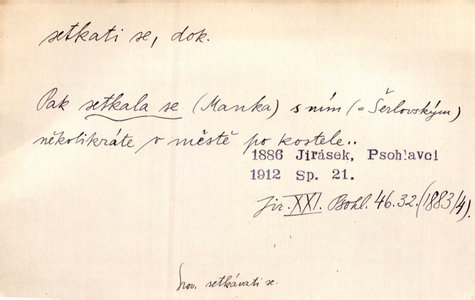 setkati se, dok.
Pak setkala se (Manka) s ním (= Šerlovským)
několikráte v městě po kostele..
1886 Jirásek, Psohlavci
1912 Sp. 21.
Jir. XXI. Bohl. 46. 32. (1883/4).
Srov. setkávati se.